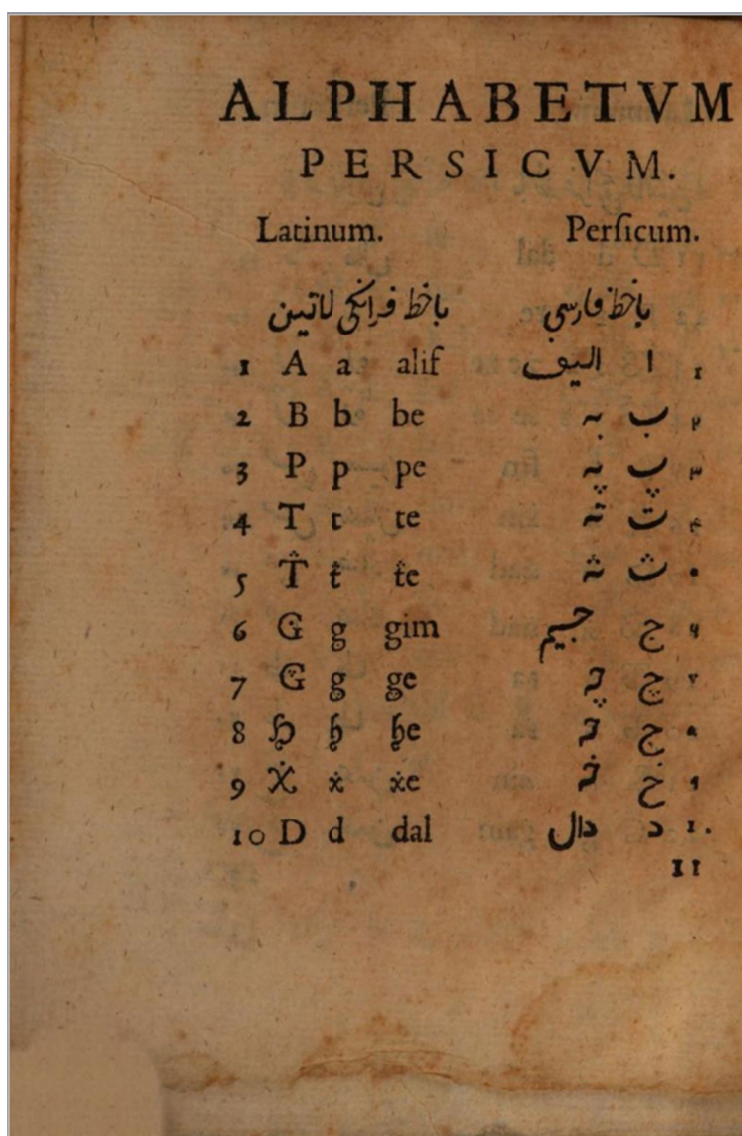 ALPHABETVM
PERSICVM.
Latinum. Perſicum.
باخط فرانكی لاتین باخط فارسی
1 A a alif الیف ا ۱
2 B b be به ب ۲
3 P p pe پَه پ ۳
4 T t te ته ت ۴
5 T̂ t̂ t̂e ثه ث ۵
6 G g gim جیم ج ۶
7 G g ge چه چ ۷
8 Ꜧ ꜧ ꜧe حه ح ۸
9 Ẋ ẋ ẋe خه خ ۹
10 D d dal دال د ۱۰
11